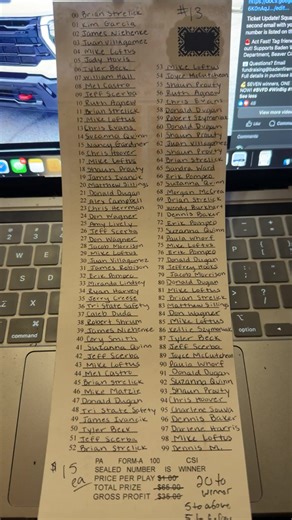 #13
00 Brian Strelick
01 Lim Garcia
02 James Niebence
03 Juan Villagomes
04 Mike Loftus
05 Judy Havis
06 Tyler Beck
07 William Hall
08 Mel Castro
09 Jeff Scerba
10 Ruth Agnew
11 Brian Strelick
12 Mike Loftus
13 Chris Evans
14 Suzanna Quinn
15 Nancy Gardner
16 Chris Hoover
17 Mike Loftus
18 Shaun Prouty
19 James Ivancic
20 Matthew Sillings
21 Donald Dugan
22 Alex Campbell
23 Chris Herrman
24 Don Wagner
25 Amy Likely
26 Jeff Scerba
27 Don Wagner
28 Jacob Morrison
29 Mike Loftus
30 Juan Villagomes
31 James Robison
32 Eric Pompeo
33 Miranda Lindsey
34 Ryan Harvey
35 Jerry Creese
36 Tri State Safety
37 Caleb Duda
38 Robert Shrum
39 James Niebence
40 Cory Smith
41 Suzanna Quinn
42 Jeff Scerba
43 Mike Loftus
44 Mel Castro
45 Brian Strelick
46 Mike Matzie
47 Donald Dugan
48 Tri State Safety
49 James Ivancic
50 Tyler Beck
51 Jeff Scerba
52 Brian Strelick
53 Mike Loftus
54 Joyce McCutcheon
55 Shaun Prouty
56 Ruth Agnew
57 Chris Evans
58 Donald Dugan
59 Robert Skyrman
60 Donald Dugan
61 Shaun Prouty
62 Juan Villagomes
63 Shaun Prouty
64 Brian Strelick
65 Sandra Ward
66 Eric Pompeo
67 Suzanna Quinn
68 Morgan McCraw
69 Brian Strelick
70 Wanda Burkhart
71 Dennis Baker
72 Eric Pompeo
73 Suzanna Quinn
74 Paula Wharf
75 Mike Loftus
76 Eric Pompeo
77 Donald Dugan
78 Jeffrey Marks
79 Jacob Morrison
80 Donald Dugan
81 Mike Loftus
82 Brian Strelick
83 Matthew Sillings
84 Don Wagner
85 Mike Loftus
86 Kellie Szymanski
87 Tyler Beck
88 Jeff Scerba
89 Joyce McCutcheon
90 Paula Wharf
91 Donald Dugan
92 Suzanna Quinn
93 Shaun Prouty
94 Chris Hoover
95 Charlene Squab
96 Dennis Baker
97 Darlene Harris
98 Mike Loftus
99 Dennis M.
PA FORM-A 100 CSI
SEALED NUMBER IS WINNER
PRICE PER PLAY $1.00
TOTAL PRIZE $65.00
GROSS PROFIT $35.00
$15 ea
20 to winner
5 to above
5 to below